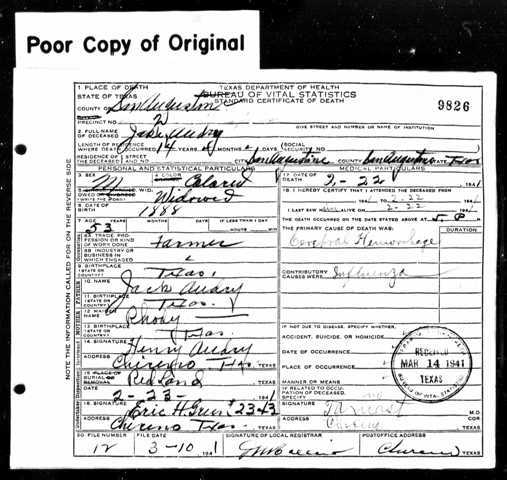 Poor Copy of Original
1 PLACE OF DEATH
STATE OF TEXAS
TEXAS DEPARTMENT OF HEALTH
BUREAU OF VITAL STATISTICS
STANDARD CERTIFICATE OF DEATH
9826
COUNTY OF San Augustine
PRECINCT NO. 2
GIVE STREET AND NUMBER OR NAME OF INSTITUTION
2. FULL NAME OF DECEASED Jake Audry
LENGTH OF RESIDENCE WHERE DEATH OCCURRED 14 YEARS MONTHS DAYS
SOCIAL SECURITY NO.
RESIDENCE OF THE DECEASED STREET CITY San Augustine COUNTY San Augustine Texas
PERSONAL AND STATISTICAL PARTICULARS
MEDICAL PARTICULARS
3. SEX M 4. COLOR Colored
17 DATE OF DEATH 2-22 1941
WID. Widowed
18 I HEREBY CERTIFY THAT I ATTENDED THE DECEASED FROM
194 TO 2-22 194
6. DATE OF BIRTH 1888
I LAST SAW ALIVE ON 2-22 194
7. AGE YEARS MONTHS DAYS IF LESS THAN 1 DAY
53 HOURS MINUTES
THE DEATH OCCURRED ON THE DATE STATED ABOVE AT P M.
8A. TRADE, PROFESSION OR KIND OF WORK DONE Farmer
THE PRIMARY CAUSE OF DEATH WAS: DURATION
Cerebral Hemorrhage
8B. INDUSTRY OR BUSINESS IN WHICH ENGAGED
9. BIRTHPLACE (STATE OR COUNTRY) Texas
CONTRIBUTORY CAUSES WERE: Influenza
10. NAME Jack Audry
11. BIRTHPLACE (STATE OR COUNTRY) Texas
12 MAIDEN NAME Rhody
13. BIRTHPLACE (STATE OR COUNTRY) Texas
IF NOT DUE TO DISEASE, SPECIFY WHETHER:
ACCIDENT, SUICIDE, OR HOMICIDE
14 SIGNATURE Henry Audry
DATE OF OCCURRENCE
ADDRESS Chireno Tex. TEXAS
PLACE OF OCCURRENCE
BURIAL OR REMOVAL Redland
MANNER OR MEANS
2-23- 1941
IF RELATED TO OCCUPATION OF DECEASED, SPECIFY
16. SIGNATURE Eric H Green #2343
SIGNATURE M.D.
ADDRESS Chireno Texas. TEXAS
ADDRESS TEXAS
20 FILE NUMBER FILE DATE SIGNATURE OF LOCAL REGISTRAR POSTOFFICE ADDRESS
12 3-10 1941 Chireno TEXAS
RECEIVED
MAR 14 1941
TEXAS
BUREAU OF VITAL STATISTICS
NOTE THIS INFORMATION CALLED FOR ON THE REVERSE SIDE
FATHER
MOTHER